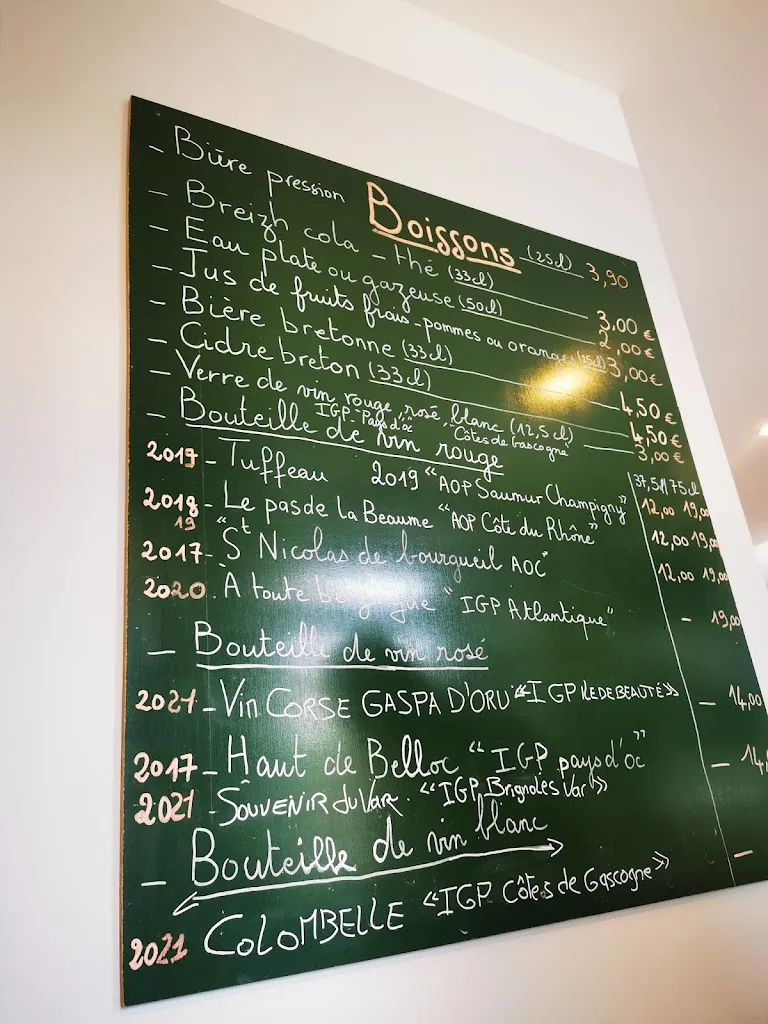 Boissons
- Bière pression (25cl) 3,90
- Breizh cola - thé (33cl) 3,00 €
- Eau plate ou gazeuse (50cl) 2,00 €
- Jus de fruits frais - pommes ou orange (25cl) 3,00 €
- Bière bretonne (33cl) 4,50 €
- Cidre breton (33cl) 4,50 €
- Verre de vin rouge, rosé, blanc (12,5cl) 3,00 €
IGP-Pays d'oc Côtes de Gascogne
- Bouteille de vin rouge 37,5cl 75cl
2019 - Tuffeau 2019 "AOP Saumur Champigny" 12,00 19,00
2018 - Le pas de la Beaume "AOP Côte du Rhône" 12,00 19,00
19
2017 - "St Nicolas de bourgueil AOC" 12,00 19,00
2020 À toute "IGP Atlantique" - 19,00
- Bouteille de vin rosé
2021 - Vin CORSE GASPA D'ORU «IGP ILE DE BEAUTÉ» - 14,00
2017 - Haut de Belloc "IGP pays d'oc" - 14,
2021 - SOUVENIR du VAR. «IGP Brignoles Var»
- Bouteille de vin blanc -
2021 COLOMBELLE «IGP Côtes de Gascogne»